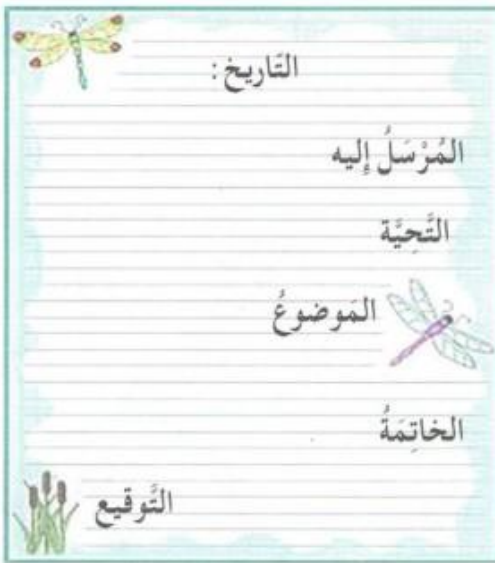 التَاريخ:
المُرْسَلُ إِليه
التَّحِيَّة
المَوضوعُ
الخاتِمَةُ
التَّوقيع